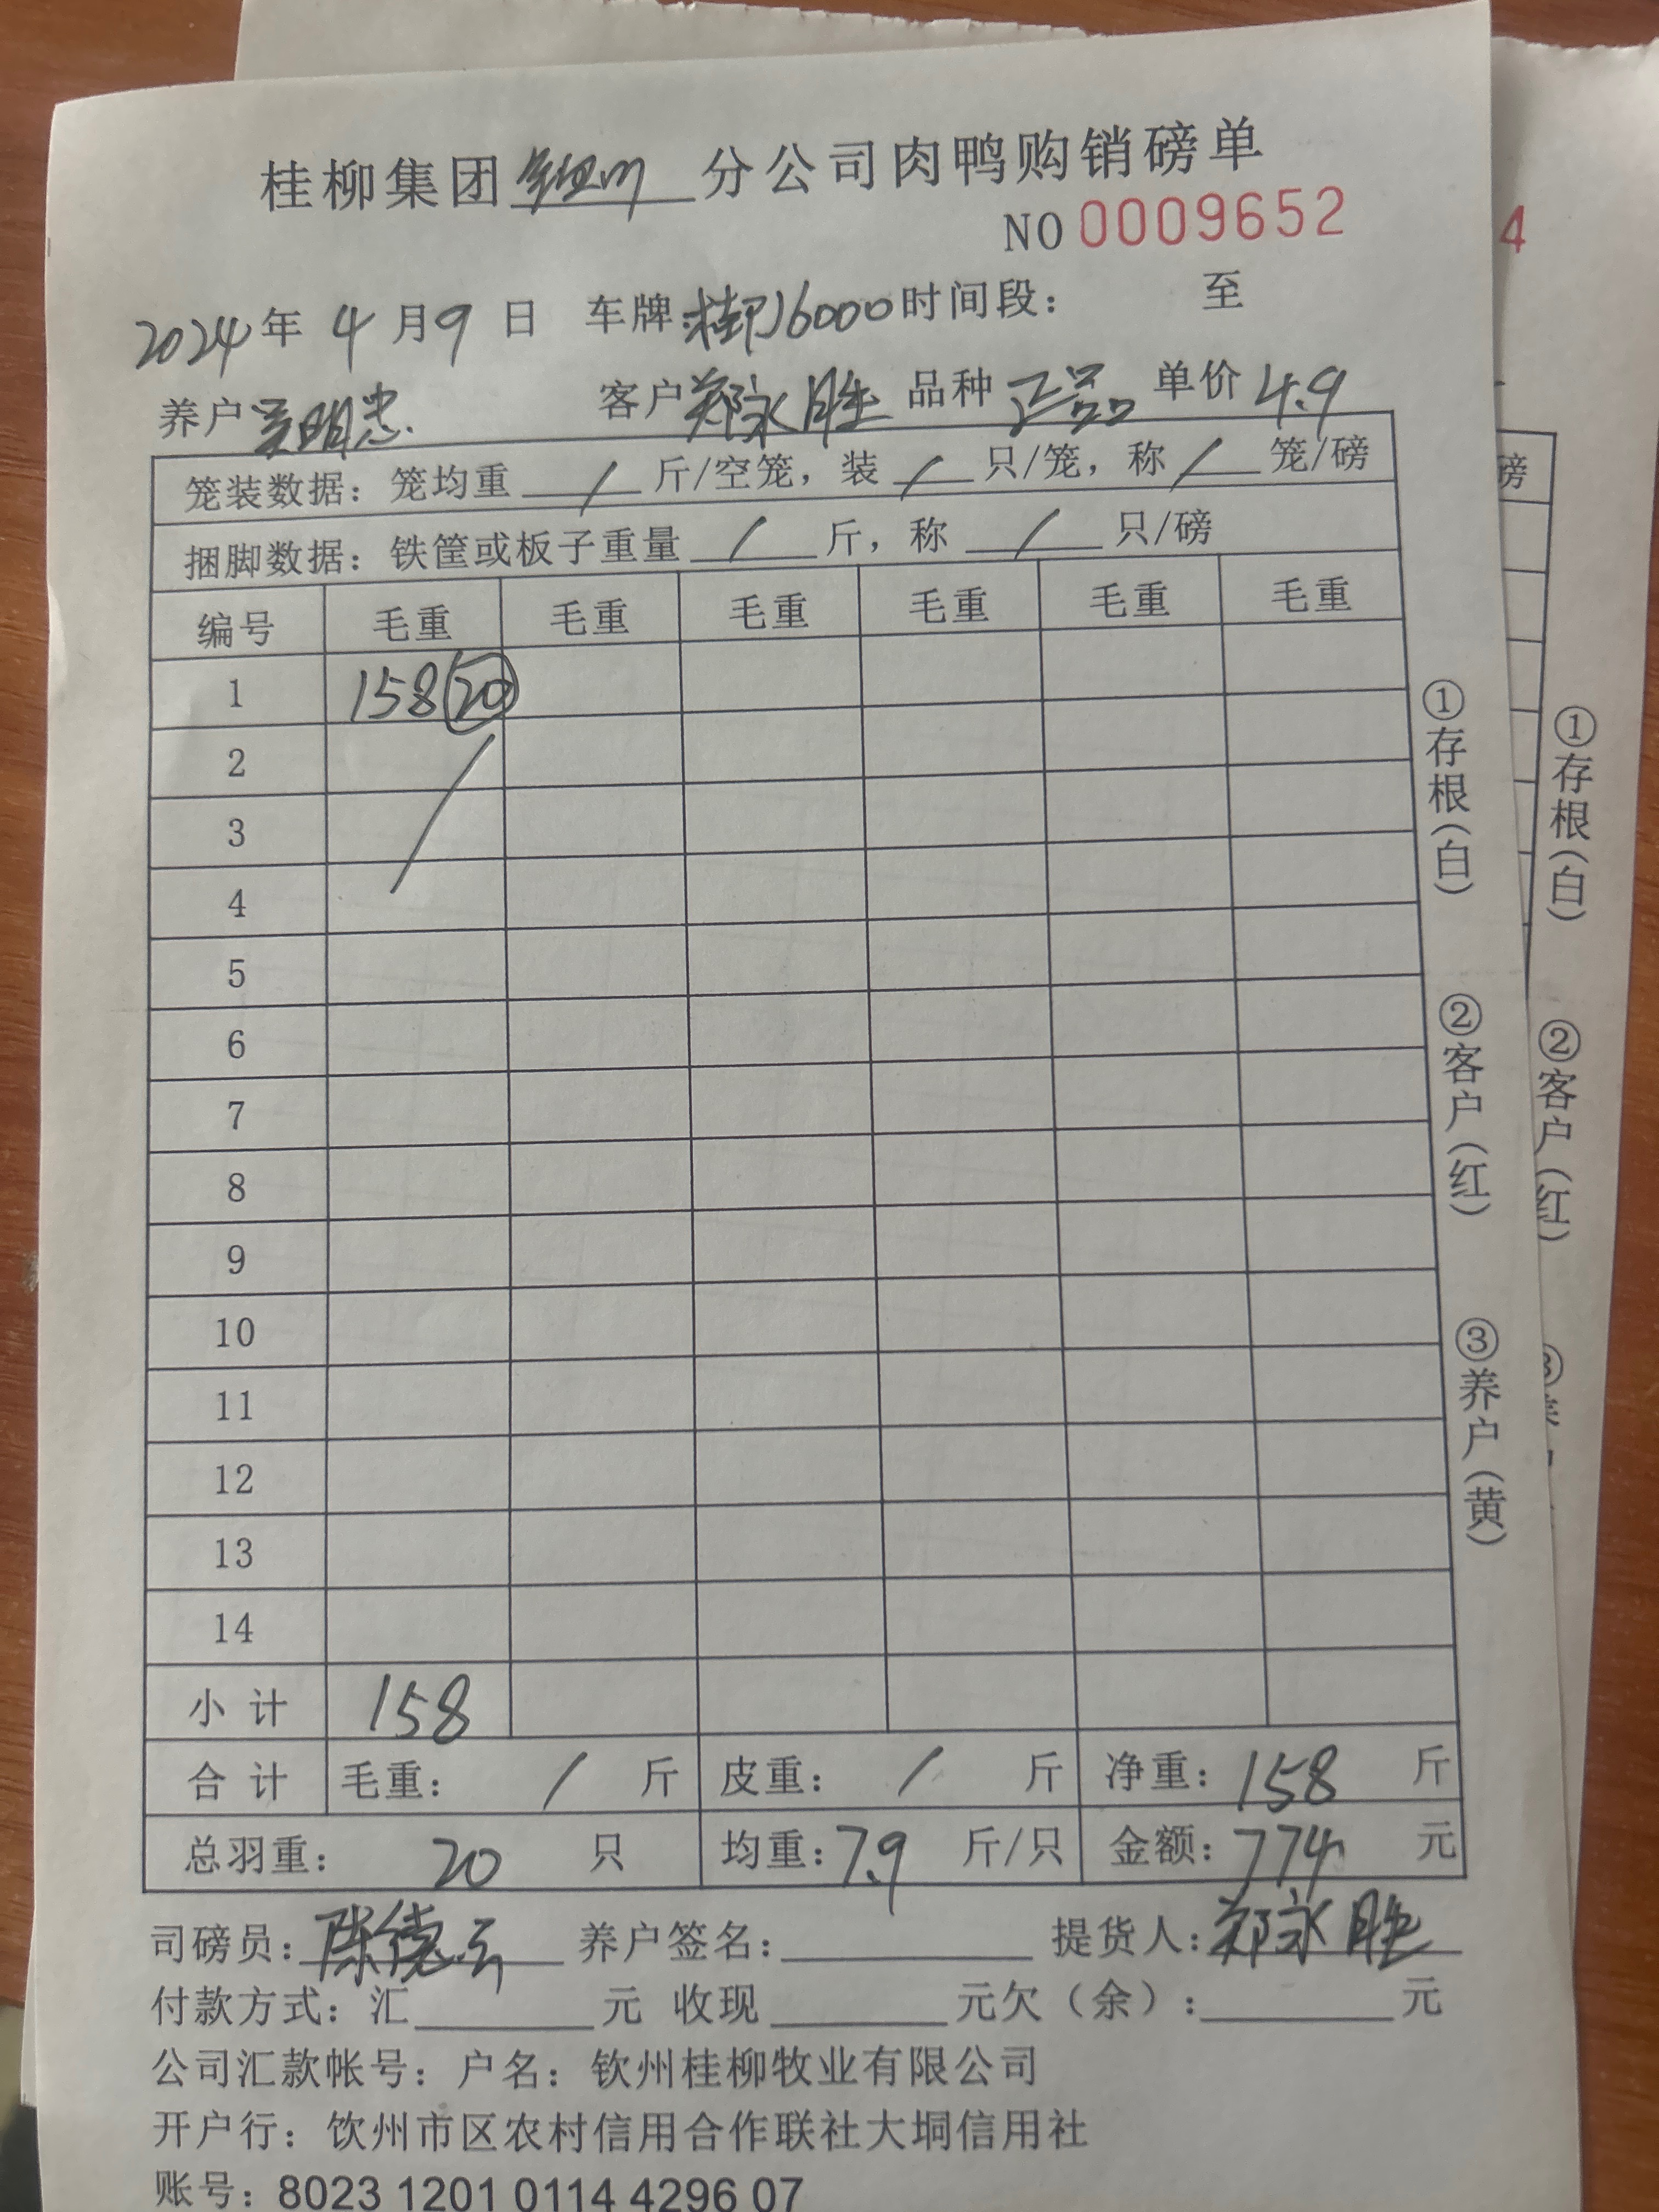 桂柳集团钦州分公司肉鸭购销磅单
NO 0009652
2024年 4月9日 车牌:桂J16000时间段: 至
养户吴明忠 客户郑永胜 品种正品 单价4.9
笼装数据:笼均重 / 斤/空笼,装 / 只/笼,称 / 笼/磅
捆脚数据:铁筐或板子重量 / 斤,称 / 只/磅
编号 毛重 毛重 毛重 毛重 毛重 毛重
1 158 20
2
3
4
5
6
7
8
9
10
11
12
13
14
小计 158
合计 毛重: / 斤 皮重: / 斤 净重:158 斤
总羽重: 20 只 均重:7.9 斤/只 金额:774 元
司磅员:陈德云 养户签名: 提货人:郑永胜
付款方式:汇 元 收现 元欠(余): 元
公司汇款帐号:户名:钦州桂柳牧业有限公司
开户行:饮州市区农村信用合作联社大垌信用社
账号:8023 1201 0114 4296 07
①存根(白)
②客户(红)
③养户(黄)
4
磅
①存根(白)
②客户(红)